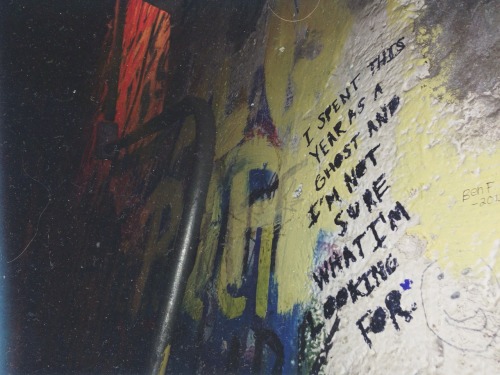 I SPENT THIS
YEAR AS A
GHOST AND
I'M NOT
SURE
WHAT I'M
LOOKING
FOR.
Ben F.